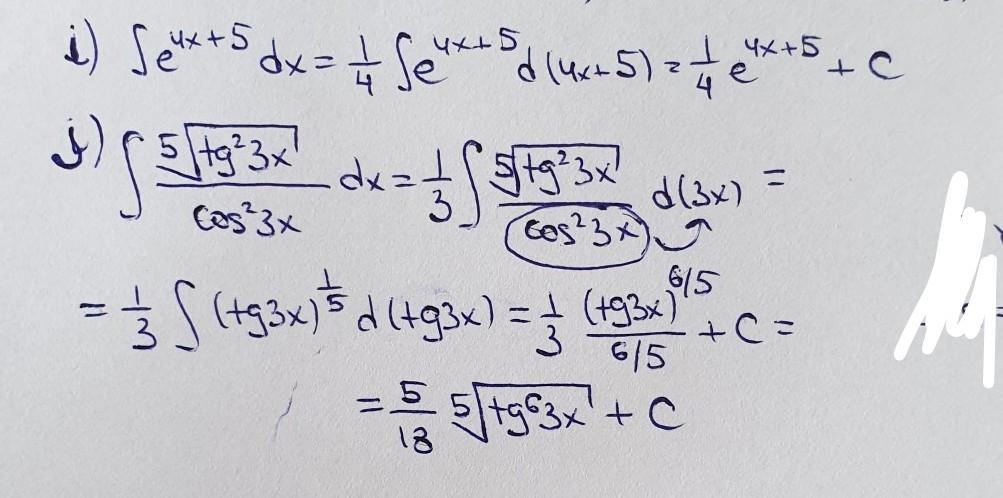 i) ∫e^{4x+5} dx = \frac{1}{4} ∫e^{4x+5} d(4x+5) = \frac{1}{4} e^{4x+5} + C
j) ∫ \frac{\sqrt[5]{tg^2 3x}}{cos^2 3x} dx = \frac{1}{3} ∫ \frac{\sqrt[5]{tg^2 3x}}{cos^2 3x} d(3x) =
= \frac{1}{3} ∫ (tg3x)^{\frac{1}{5}} d(tg3x) = \frac{1}{3} \frac{(tg3x)^{6/5}}{6/5} + C =
= \frac{5}{18} \sqrt[5]{tg^6 3x} + C